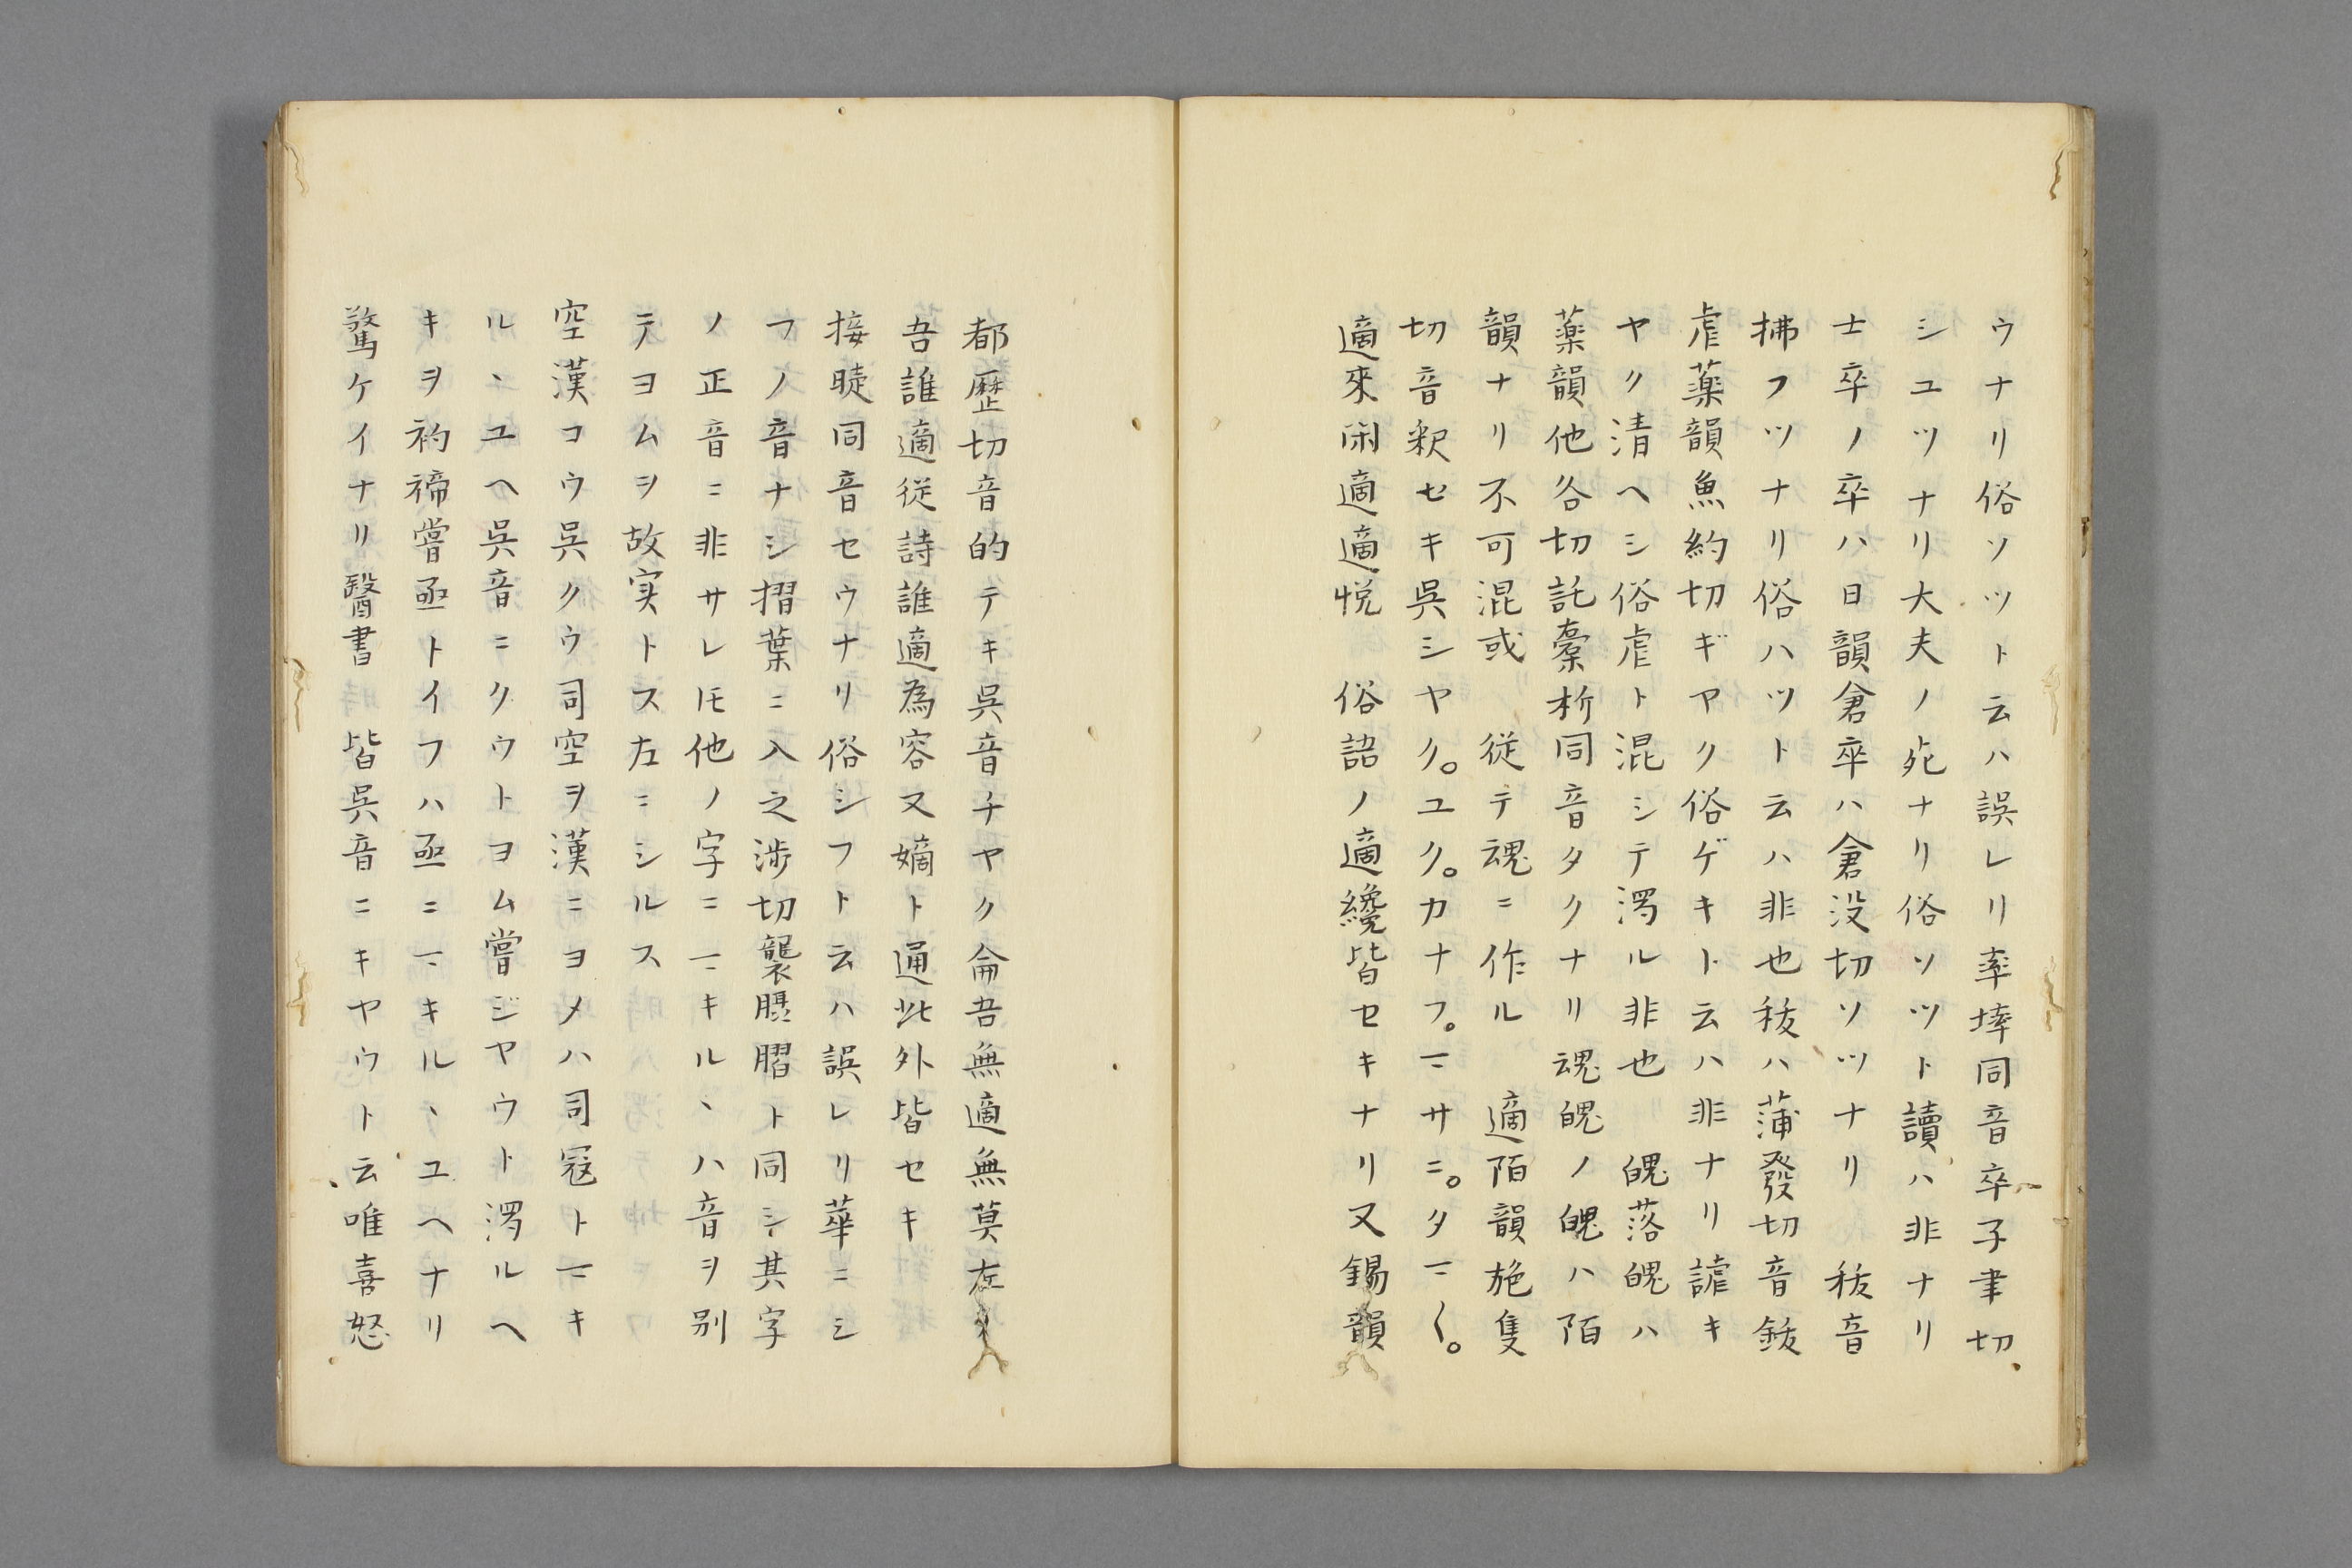 ウナリ俗ソツト云ハ誤レリ率㙛同音卒子聿切
シユツナリ大夫ノ死ナリ俗ソツト讀ハ非ナリ
士卒ノ卒ハ日韻倉卒ハ倉没切ソツナリ 秡音
拂フツナリ俗ハツト云ハ非也秡ハ蒲發切音鈸
虐薬韻魚約切ギヤク俗ゲキト云ハ非ナリ謔キ
ヤク清ヘシ俗虐ト混シテ濁ル非也 魄落魄ハ
薬韻他各切託槖柝同音タクナリ魂魄ノ魄ハ陌
韻ナリ不可混或 従テ魂ニ作ル 適陌韻施隻
切音釈セキ呉シヤク。ユク。カナフ。マサニ。タマ〱。
適來閑適適悦 俗語ノ適纔皆セキナリ又錫韻
都歷切音的テキ呉音チヤク侖吾無適無莫左
吾誰適従詩誰適為容又嫡ト通此外皆セキ
接睫同音セウナリ俗シフト云ハ誤レリ華ニシ
フノ音ナシ摺葉ニ入之渉切襲 膃ト同シ其字
ノ正音ニ非サレ𪜈他ノ字ニマキルヽハ音ヲ别
テヨムヲ故実トス左ニシルス
空漢コウ呉クウ司空ヲ漢ニヨメハ司冦トマキ
ルヽユヘ呉音ニクウトヨム嘗ジヤウト濁ルヘ
キヲ礿禘嘗烝トイフハ烝ニマキルヽユヘナリ
驚ケイナリ醫書 皆呉音ニキヤウト云唯喜怒